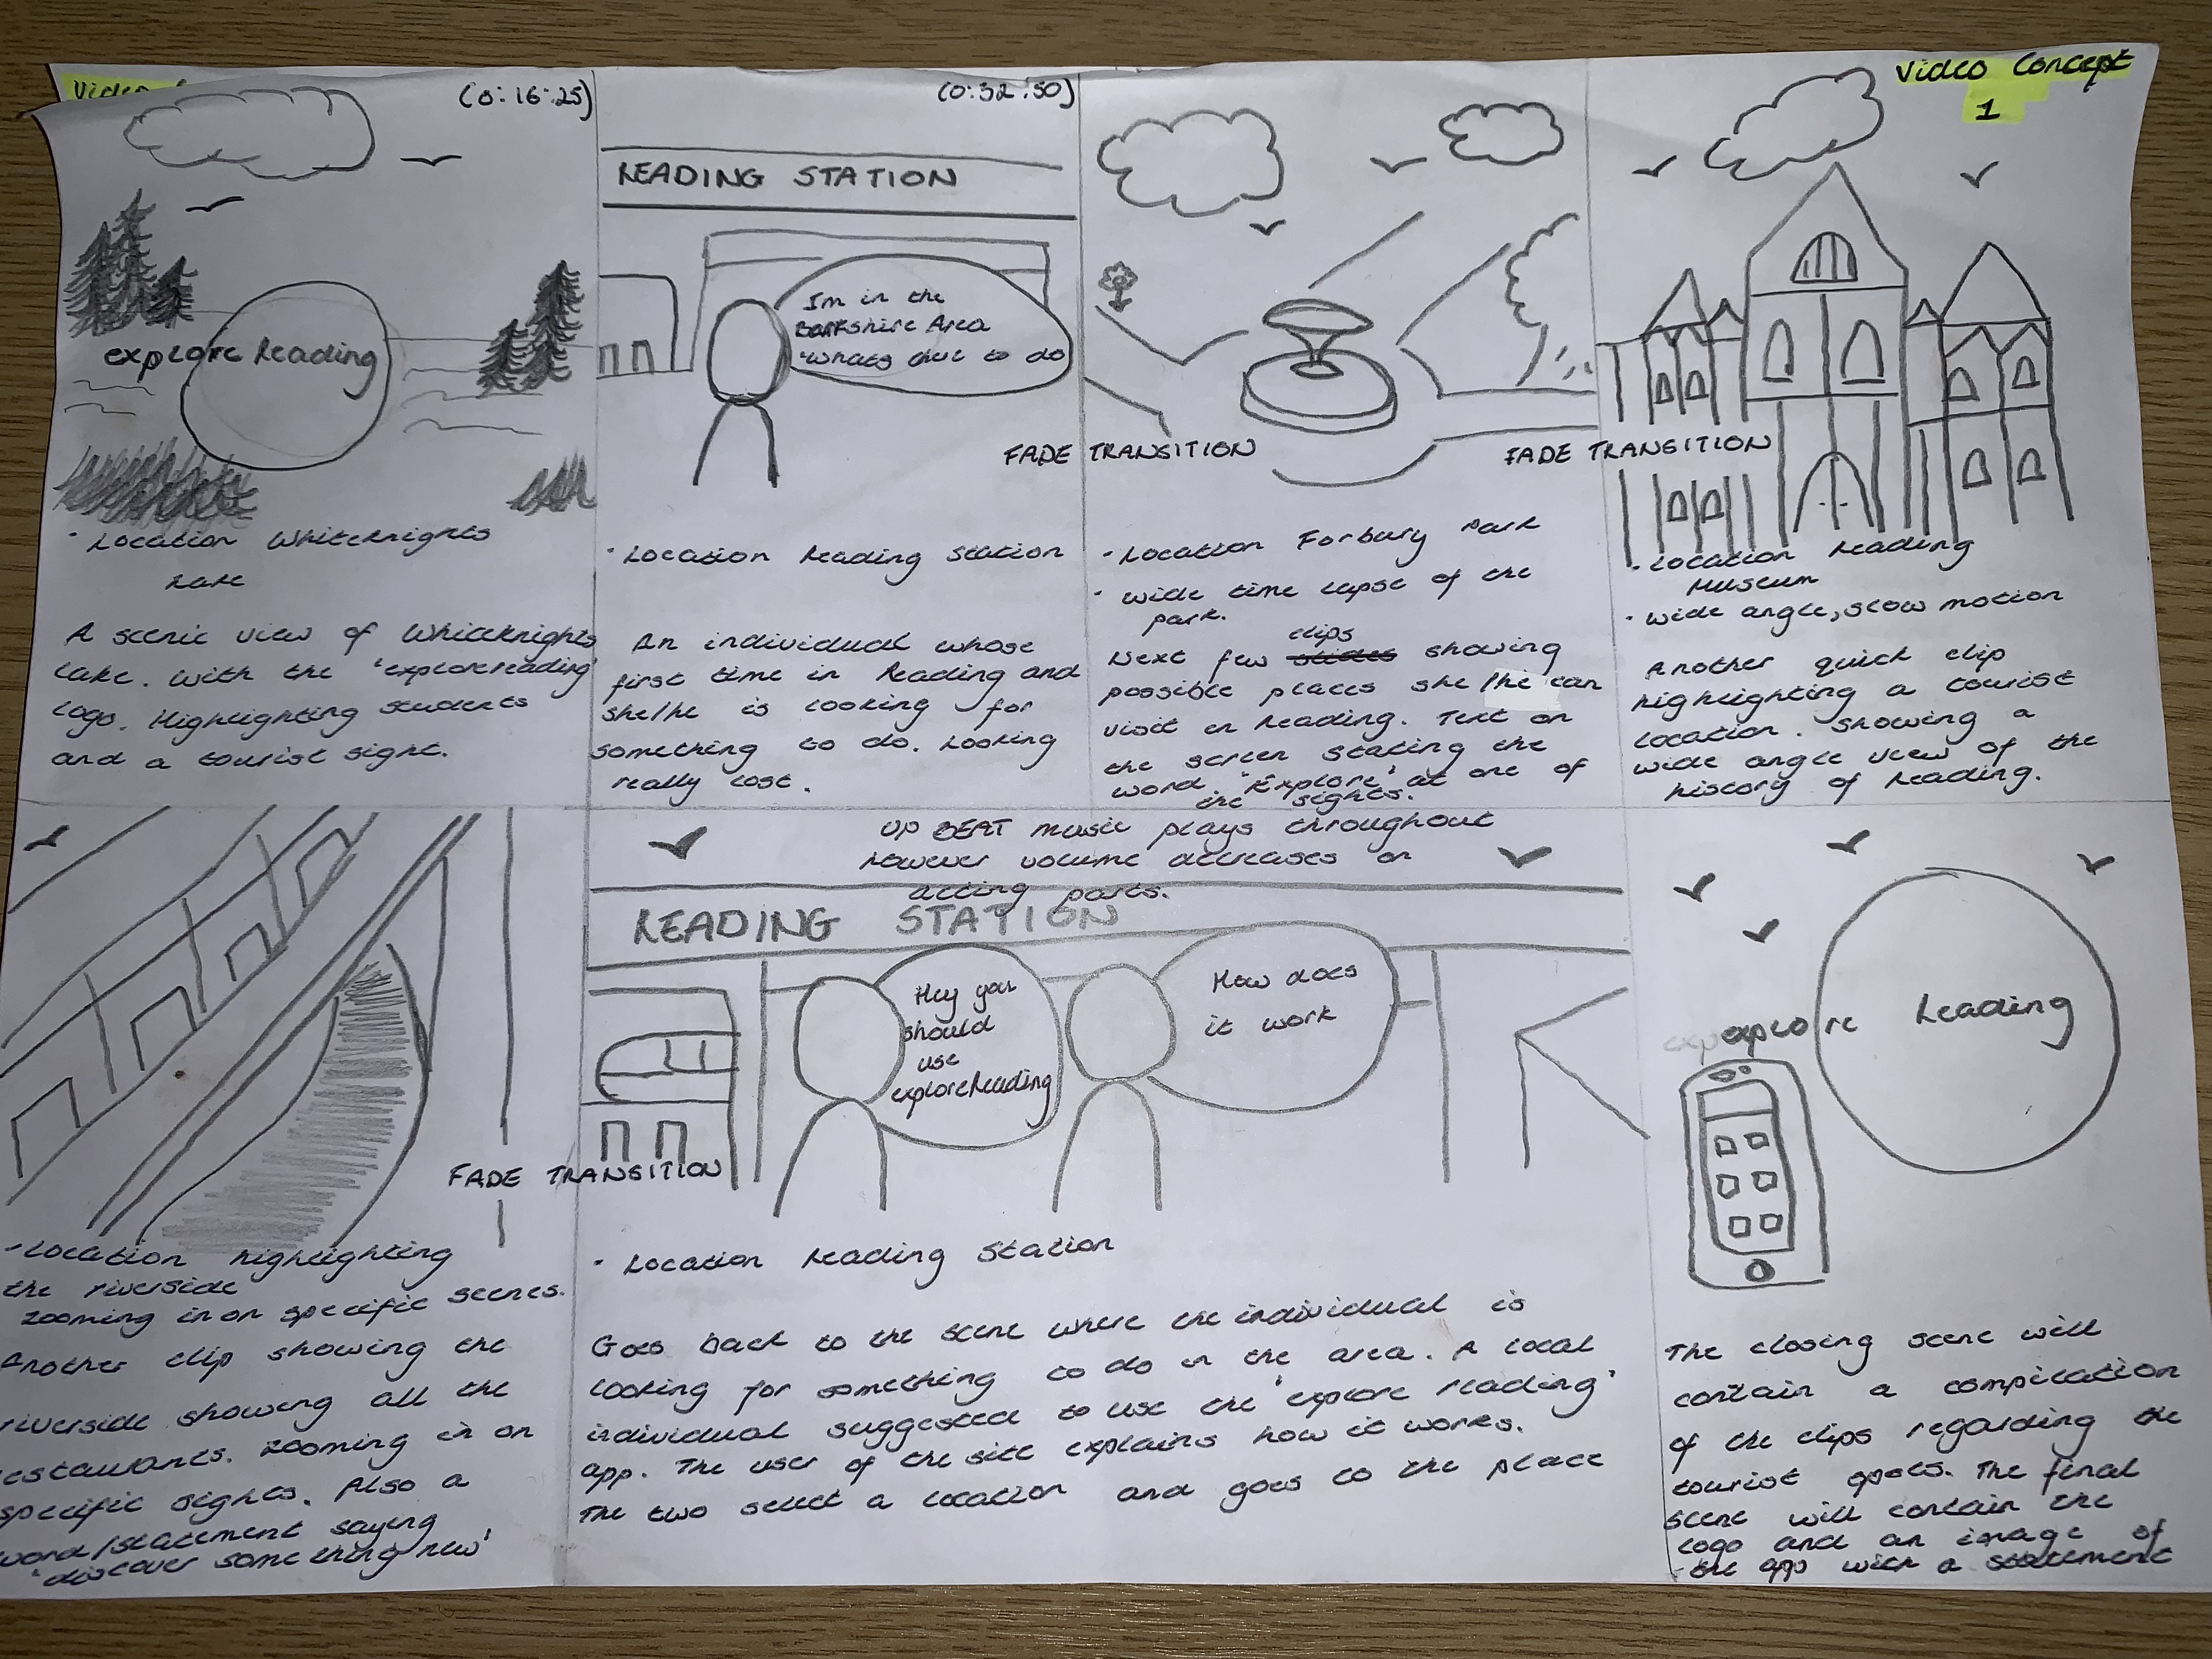 Video
(0:16:25)
explore Reading
· Location Whiteknights
Lake
A scenic view of Whiteknights
Lake. With the 'explorereading'
logo. Highlighting students
and a tourist sight.
(0:32:50)
READING STATION
Im in the
Barkshire Area
'whats
to do
FADE TRANSITION
· Location Reading Station
An individual whose
first time in Reading and
she/he is looking for
something to do. Looking
really lost.
FADE TRANSITION
· Location Forbury Park
· wide time lapse of the
park.
clips
Next few slides showing
possible places she/he can
visit in Reading. Text on
the screen stating the
word 'Explore' at one of
the sights.
Video Concept
1
· Location Reading
Museum
· wide angle, slow motion
Another quick clip
highlighting a tourist
location. Showing a
wide angle view of the
history of Reading.
FADE TRANSITION
- Location highlighting
the riverside
zooming in on specific scenes.
Another clip showing the
riverside showing all the
restaurants. Zooming in on
specific sights. Also a
word/statement saying
'discover something new'
UP BEAT music plays throughout
however volume decreases on
acting parts.
READING STATION
Hey you
should
use
exploreReading
How does
it work
· Location Reading Station
Goes back to the scene where the individual is
looking for something to do in the area. A local
individual suggested to use the 'explore reading'
app. The user of the site explains how it works.
The two select a location and goes to the place
explore Reading
The closing scene will
contain a compilation
of the clips regarding the
tourist spots. The final
scene will contain the
logo and an image of
the app with a statement